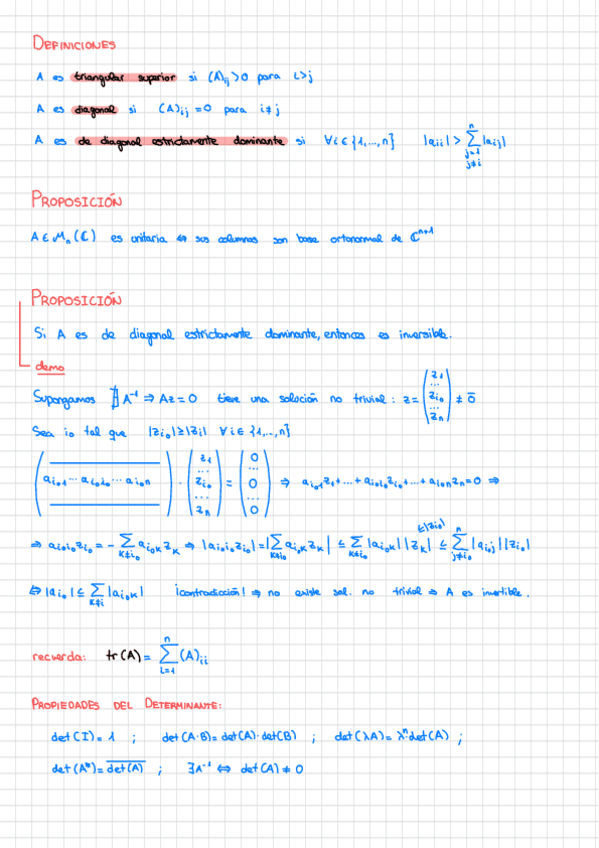 DEFINICIONES
A es triangular superior si (A)ij > 0 para i>j
A es diagonal si (A)ij = 0 para i≠j
A es de diagonal estrictamente dominante si ∀i∈{1,...,n} |aii| > ∑_{j=1, j≠i}^{n} |aij|
PROPOSICIÓN
A∈Mn(ℂ) es unitaria ⇔ sus columnas son base ortonormal de ℂ^{n+1}
PROPOSICIÓN
Si A es de diagonal estrictamente dominante, entonces es inversible.
demo
Supongamos ∄A⁻¹ ⇒ Az=0 tiene una solución no trivial: z = (z1 ... zi₀ ... zn) ≠ 0̄
Sea i₀ tal que |zi₀| ≥ |zi| ∀i∈{1,...,n}
(ai₀1 ... ai₀i₀ ... ai₀n) · (z1 ... zi₀ ... zn) = (0 ... 0 ... 0) ⇒ ai₀1z1+...+ai₀i₀zi₀+...+ai₀nzn=0 ⇒
≤|zi₀|
⇒ ai₀i₀zi₀ = -∑_{k≠i₀} ai₀k zk ⇒ |ai₀i₀zi₀| = |∑_{k≠i₀} ai₀k zk| ≤ ∑_{k≠i₀} |ai₀k||zk| ≤ ∑_{j≠i₀}^{n} |ai₀j||zi₀|
⇔ |ai₀| ≤ ∑_{k≠i} |ai₀k| ¡contradicción! ⇒ no existe sol. no trivial ⇒ A es invertible.
recuerda: tr(A) = ∑_{i=1}^{n} (A)ii
PROPIEDADES DEL DETERMINANTE:
det(I)=1 ; det(A·B)=det(A)·det(B) ; det(λA)=λⁿ·det(A) ;
det(A*)=\overline{det(A)} ; ∃A⁻¹ ⇔ det(A)≠0